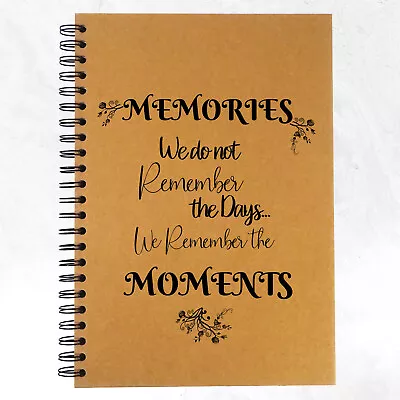 MEMORIES
We do not
Remember
the Days...
We Remember the
MOMENTS